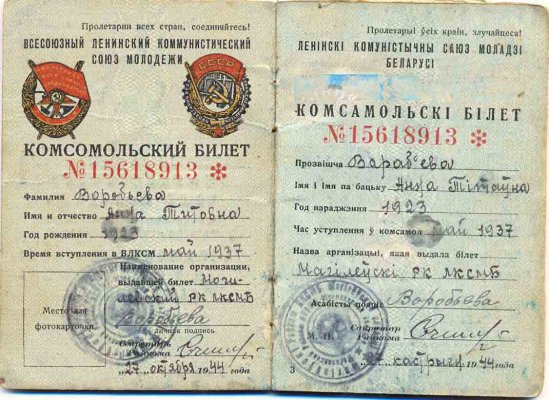 Пролетарии всех стран, соединяйтесь!
ВСЕСОЮЗНЫЙ ЛЕНИНСКИЙ КОММУНИСТИЧЕСКИЙ
СОЮЗ МОЛОДЕЖИ
СССР
КОМСОМОЛЬСКИЙ БИЛЕТ
№15618913 *
Фамилия Воробьева
Имя и отчество Анна Титовна
Год рождения 1923
Время вступления в ВЛКСМ май 1937
Наименование организации,
выдавшей билет Моги-
левский РК ЛКСМБ
Место для
фотокарточки
Воробьева
личная подпись
Секретарь
Райкома
"27" октября 1944 года
Пролетарыі ўсіх краін, злучайцеся!
ЛЕНІНСКІ КОМУНІСТЫЧНЫ САЮЗ МОЛАДЗІ
БЕЛАРУСІ
КОМСАМОЛЬСКІ БІЛЕТ
№15618913 *
Прозвішча Вараб'ева
Імя і Імя па бацьку Анна Тітаўна
Год нараджэння 1923
Час уступлення ў комсамол май 1937
Назва арганізацыі, якая выдала білет
Магілеўскі РК ЛКСМБ
Асабісты подпіс Воробьева
М. П.
Секретар
Райкома
"27" кастрыч 1944 г.
3